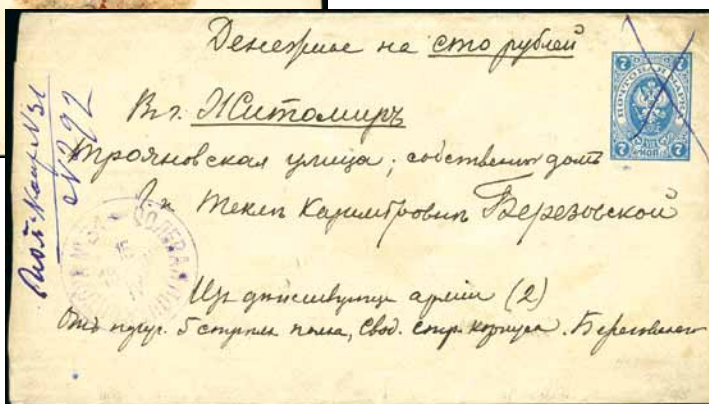 Денежное на сто рублей
Въ г. Житомиръ
Трояновская улица; собственн домъ
Текле Казимiровне Березовской
Из действующе армiи (2)
Отъ подпор. 5 стрелк полка, Свод. Стр. корпуса. Березовскаго
Пол. Конт N 31
N 292
ПОЧТОВАЯ МАРКА
7 7
7 КОП 7
ПОЛЕВАЯ
15